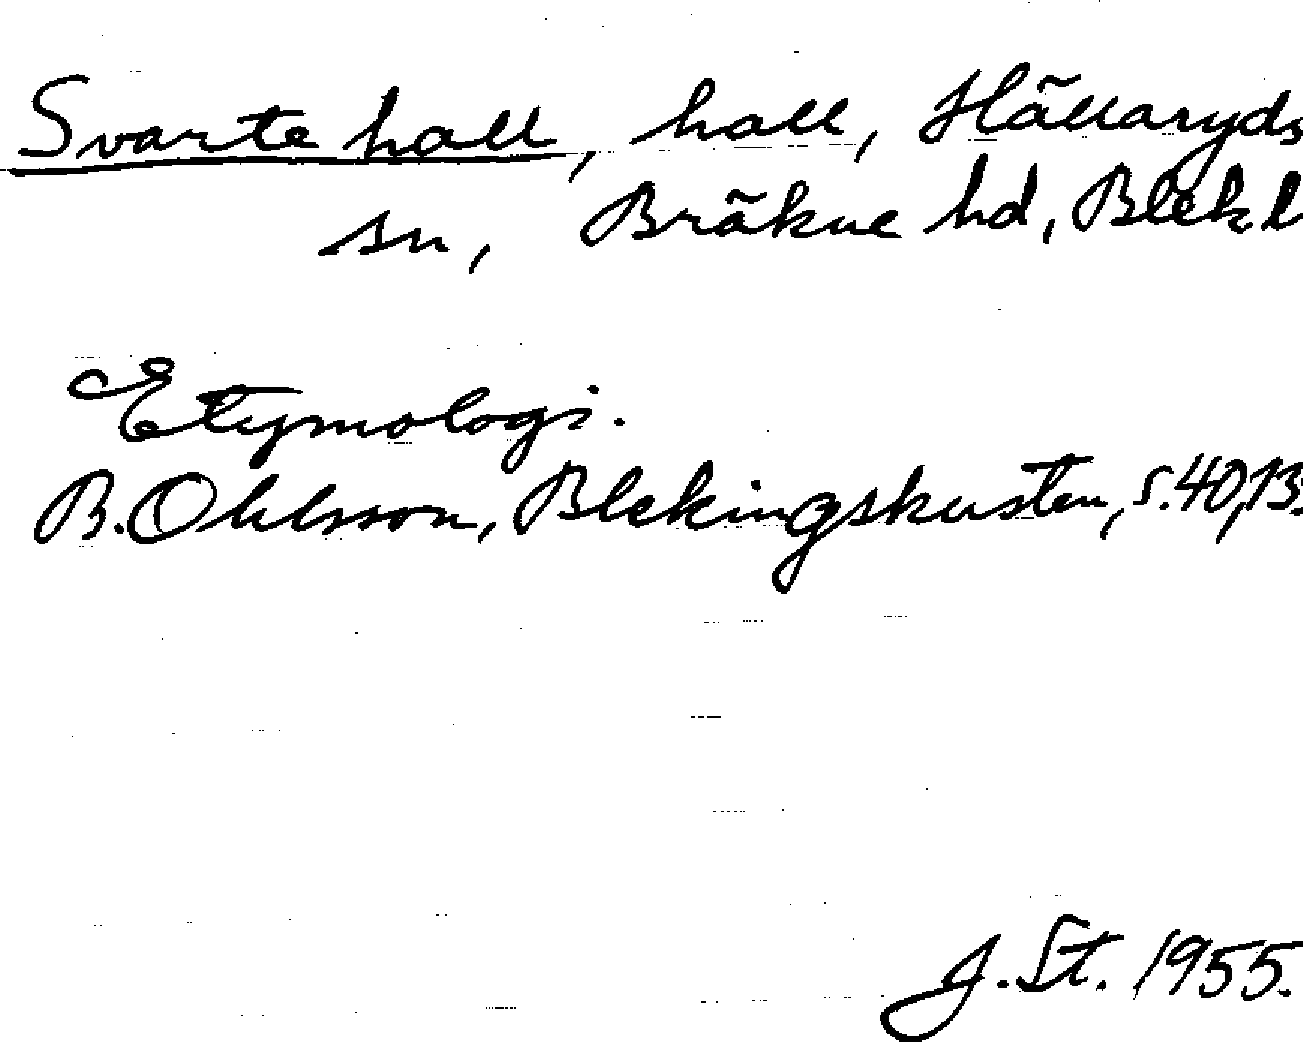 Svarte hall, hall, Hällaryds
sn, Bräkne hd, Blek. l
Etymologi.
B. Ohlsson, Blekingskusten, s. 40, 13
J. St. 1955.